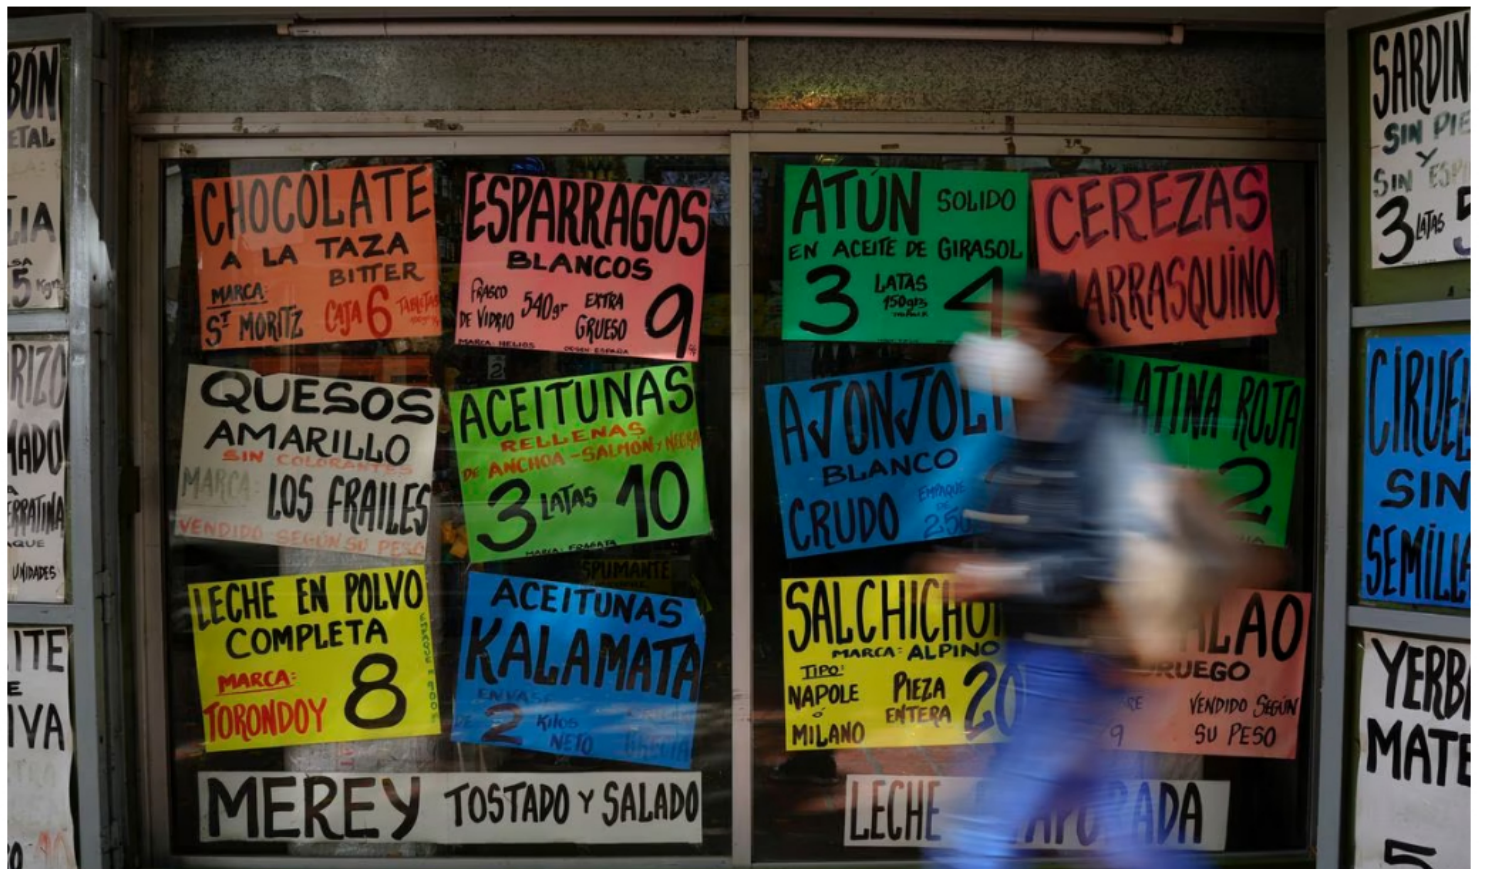 BÓN
ETAL
LIA
5 Kgrs
RIZO
MADO
AQUE
UNIDADES
ITE
E
IVA
CHOCOLATE
A LA TAZA
BITTER
MARCA:
ST MORITZ
CAJA 6 TABLETAS
ESPARRAGOS
BLANCOS
FRASCO
DE VIDRIO
540gr
EXTRA
GRUESO
9
MARCA: HELIOS
ORIGEN ESPAÑA
QUESOS
AMARILLO
SIN COLORANTES
MARCA: LOS FRAILES
VENDIDO SEGÚN SU PESO
ACEITUNAS
RELLENAS
DE ANCHOA-SALMÓN, NEGRA
3 LATAS 10
MARCA: FRAGATA
SPUMANTE
LECHE EN POLVO
COMPLETA
MARCA:
TORONDOY
8
ACEITUNAS
KALAMATA
ENVASE
DE 2 Kilos
NETO
GRECIA
MEREY TOSTADO Y SALADO
ATÚN SOLIDO
EN ACEITE DE GIRASOL
3 LATAS 4
150grs
CEREZAS
MARRASQUINO
AJONJOLI
BLANCO
CRUDO
EMPAQUE
DE
250
LATINA ROJA
2
SALCHICHO
MARCA: ALPINO
TIPO:
NAPOLE
ó
MILANO
PIEZA
ENTERA
20
LAO
RUEGO
VENDIDO SEGÚN
SU PESO
9
LECHE APORADA
SARDIN
SIN PIE
Y
SIN ESPI
3 LATAS 5
CIRUEL
SIN
SEMILLA
YERBA
MATE
5